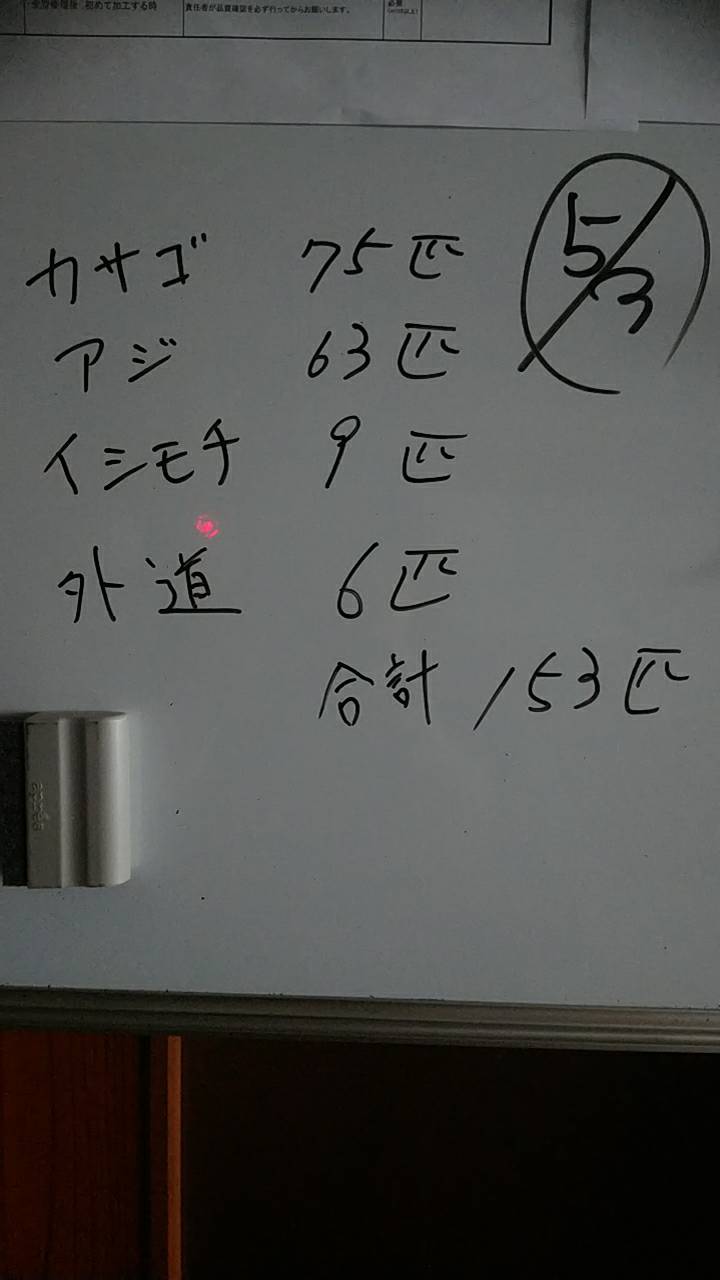 初めて加工する時
責任者が品質確認を必ず行ってからお願いします。
5/3
カサゴ 75匹
アジ 63匹
イシモチ 9匹
外道 6匹
合計 153匹